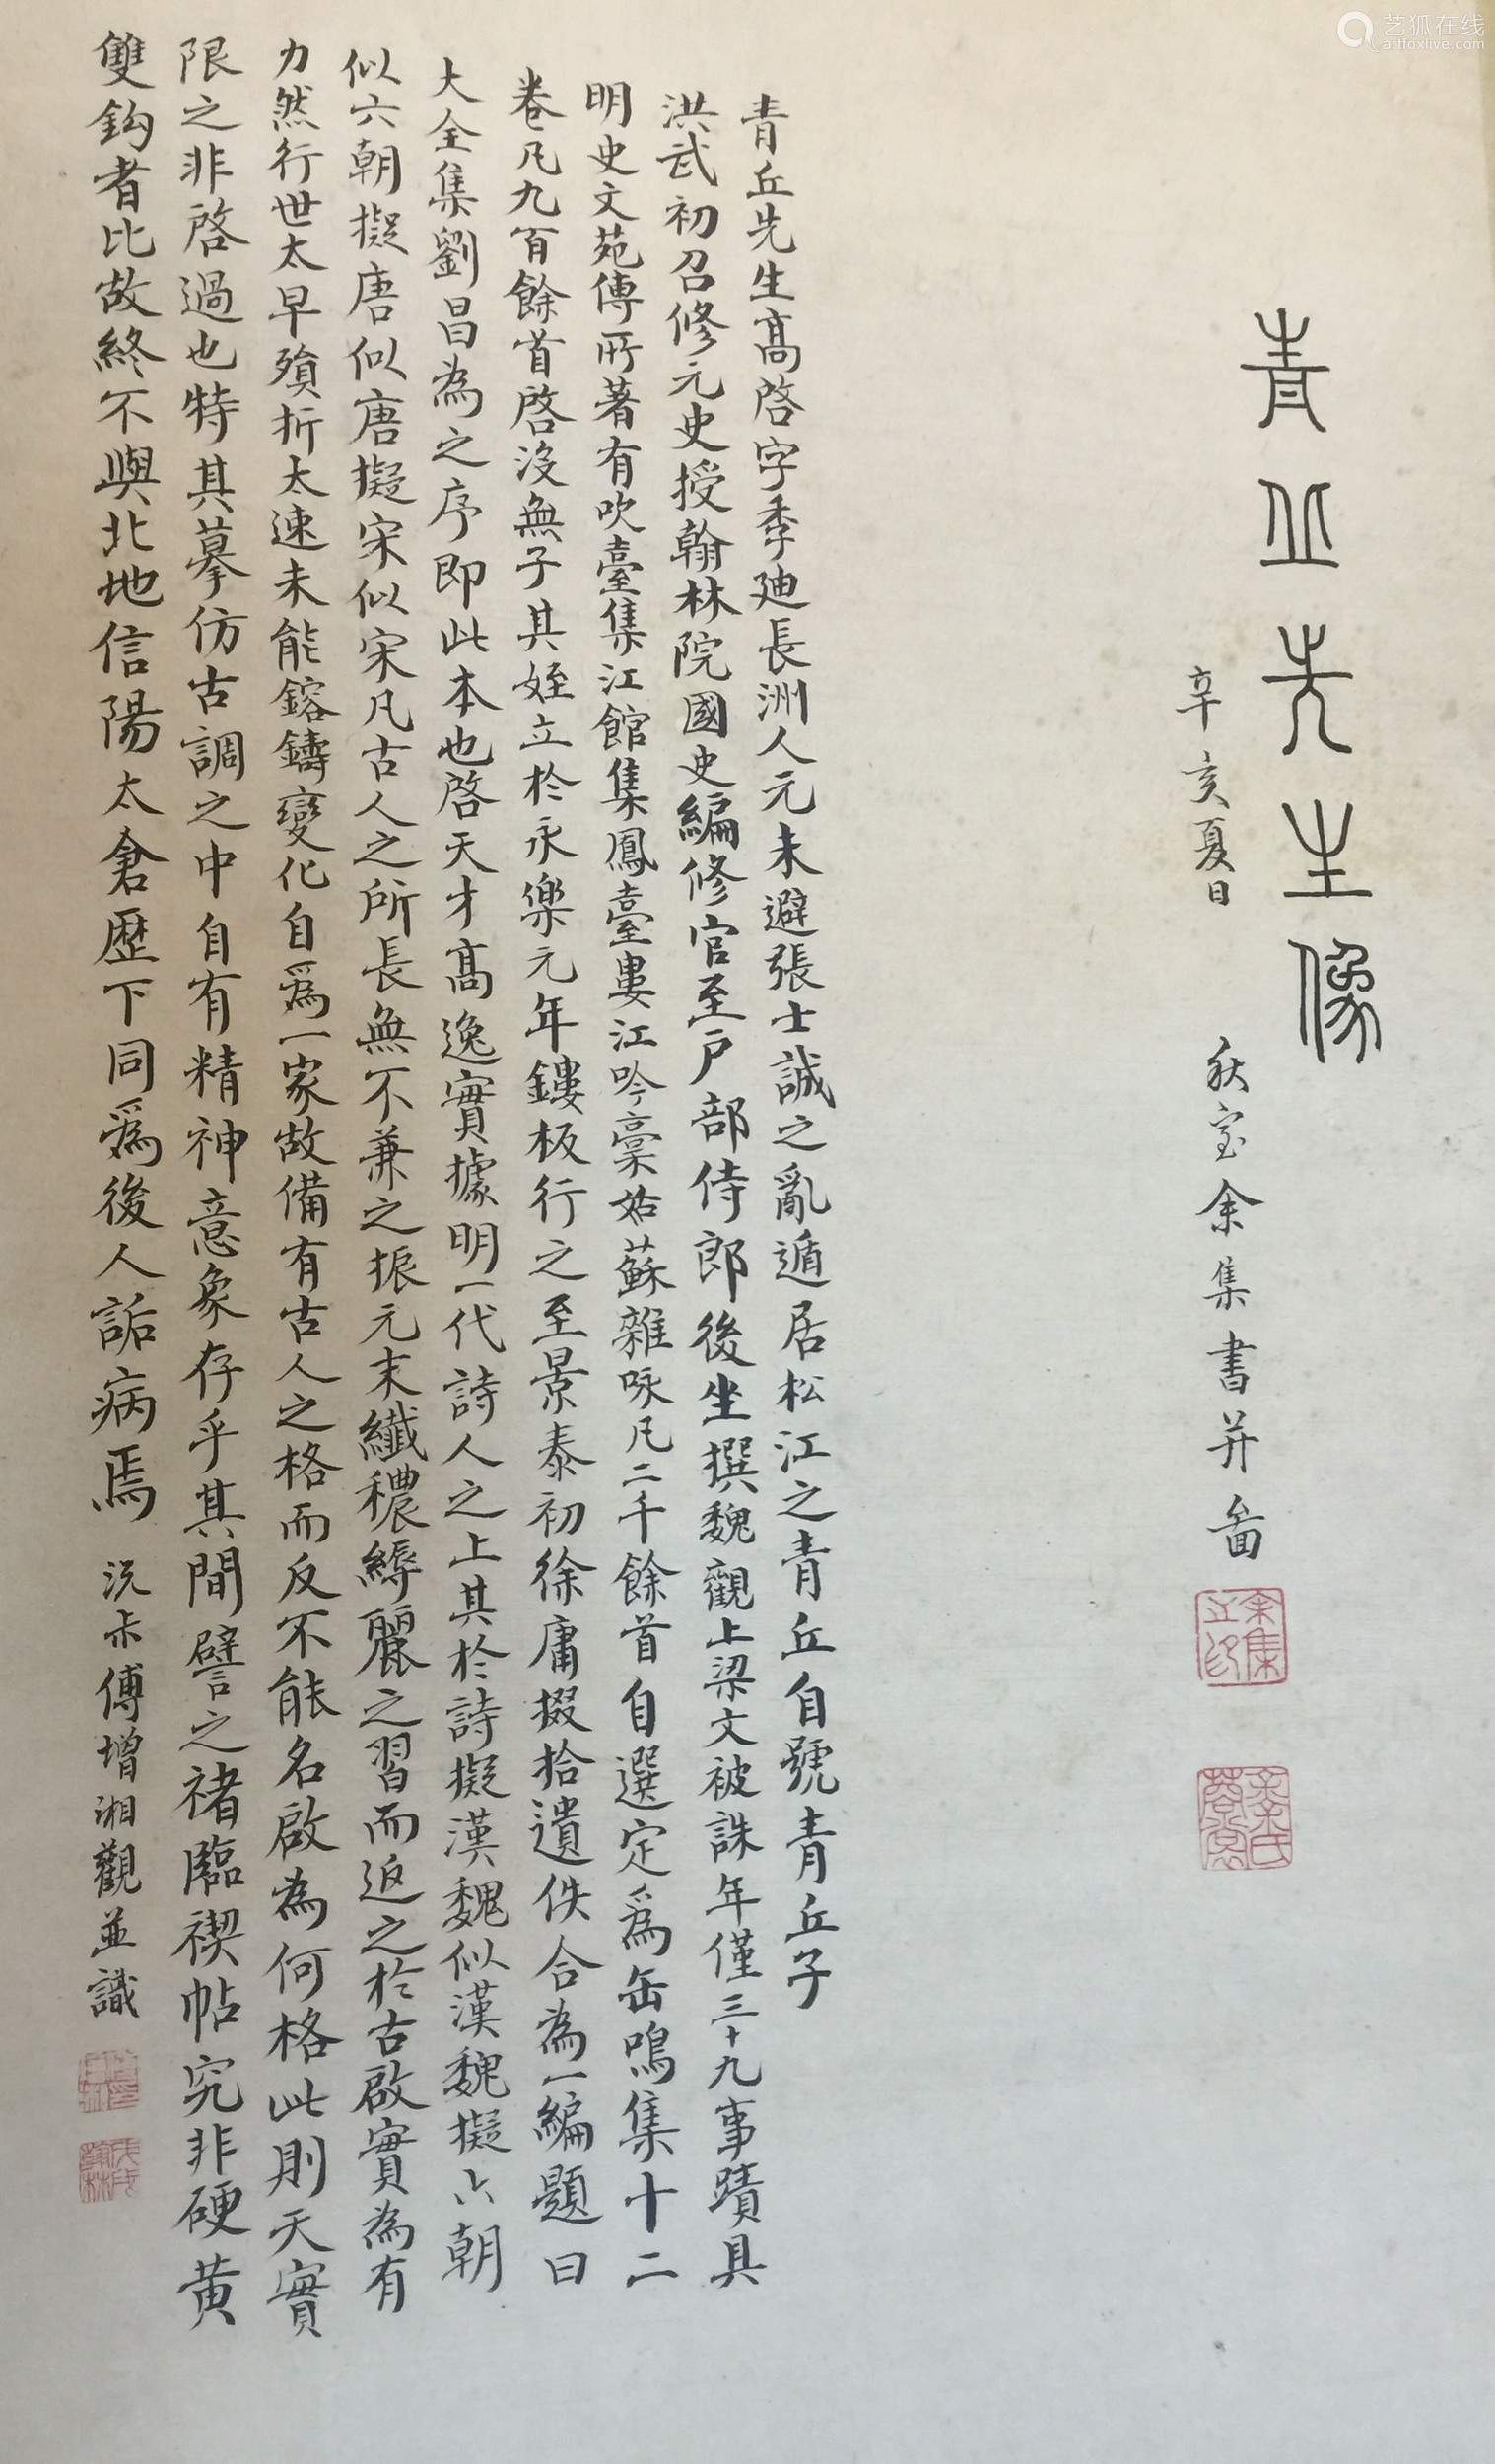 艺狐在线
artfoxlive.com
青丘先生像
辛亥夏日
秋室余集書并啚
余集之印
青丘先生高啓字季廸長洲人元末避張士誠之亂遁居松江之青丘自號青丘子
洪武初召修元史授翰林院國史編修官至戸部侍郎後坐撰魏觀上梁文被誅年僅三十九事蹟具
明史文苑傳所著有吹臺集江館集鳳臺集婁江吟藁姑蘇雜咏凡二千餘首自選定爲缶鳴集十二
卷凡九百餘首啓没無子其姪立於永樂元年鏤板行之至景泰初徐庸掇拾遺佚合為一編題曰
大全集劉昌為之序即此本也啓天才高逸實據明一代詩人之上其於詩擬漢魏似漢魏擬六朝
似六朝擬唐似唐擬宋似宋凡古人之所長無不兼之振元末纖穠縟麗之習而返之於古啟實為有
力然行世太早殞折太速未能鎔鑄變化自爲一家故備有古人之格而反不能名啟為何格此則天實
限之非啓過也特其摹仿古調之中自有精神意象存乎其間譬之褚臨禊帖究非硬黄
雙鈎者比故終不與北地信陽太倉歷下同爲後人詬病焉
沅朩傅增湘觀並識